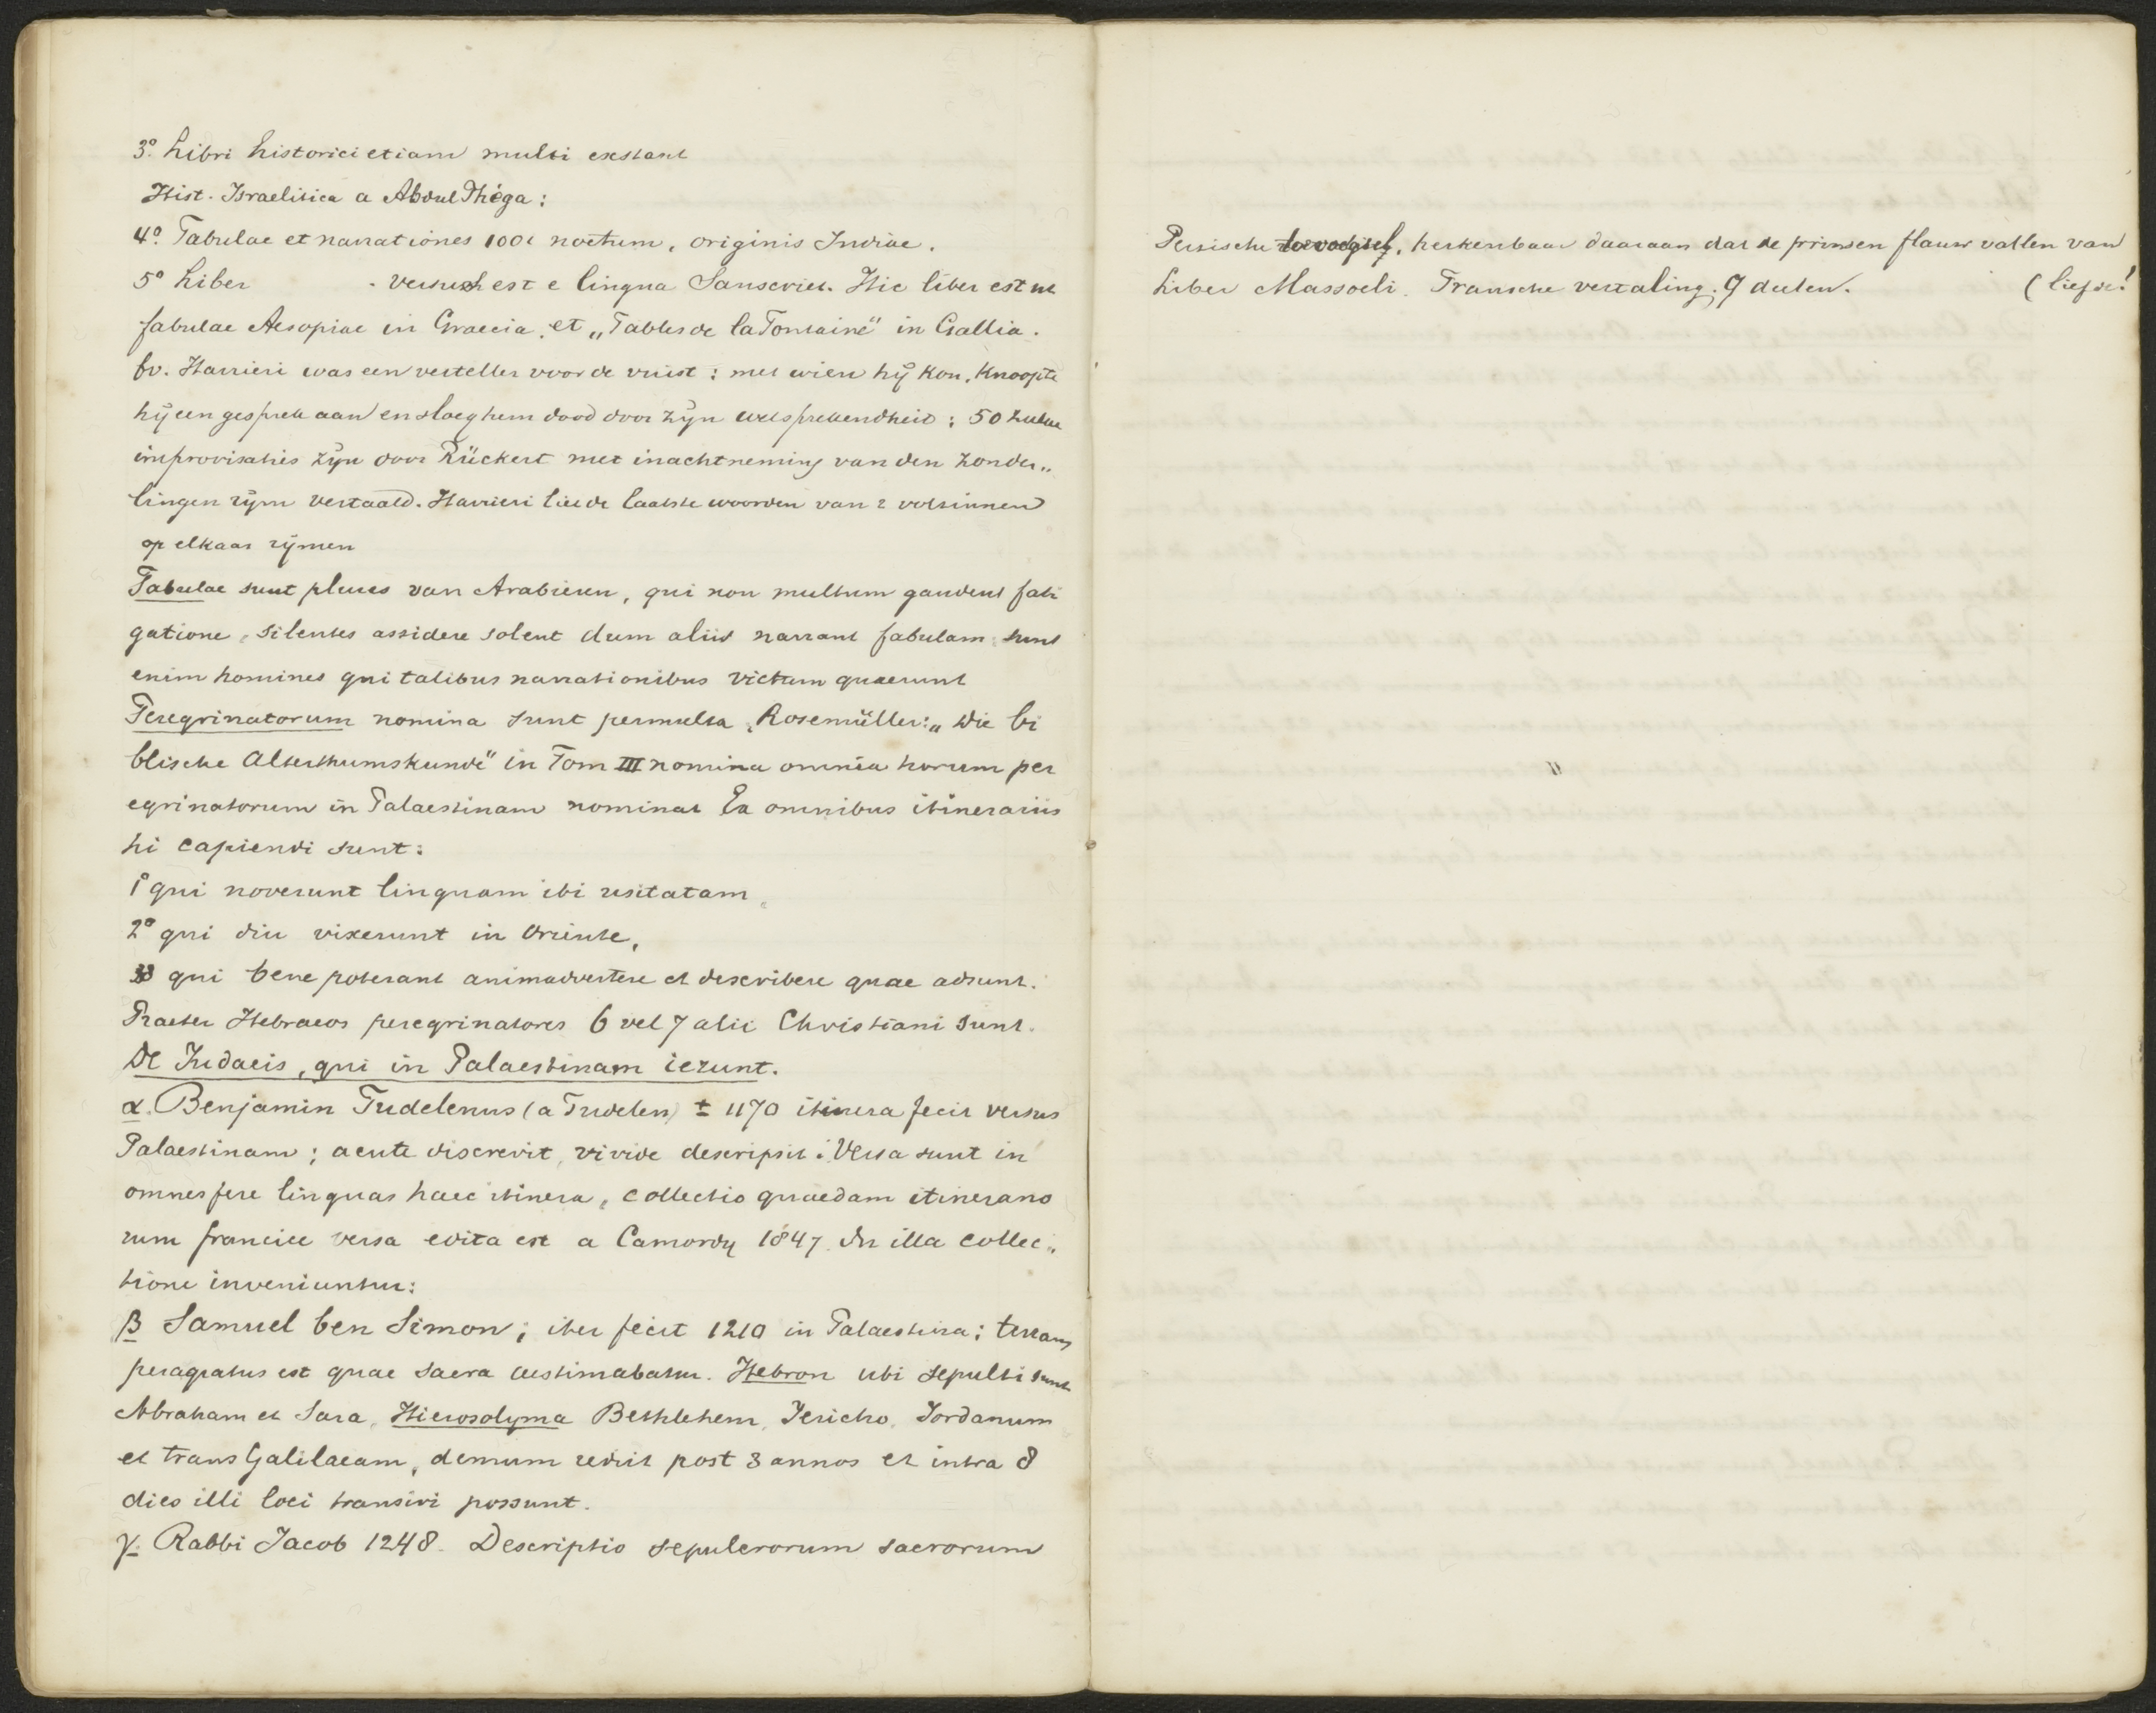 3º. Libri historici etiam multi exstant
Hist. Israelitica a Aboul Phéga:
4º. Fabulae et narrationes 1001 noctum, originis Indiae.
5º Liber . versus est e lingua Sanscriet. Hic liber est ut
fabulae Aesopiae in Graecia. et „Fables de la Fontaine" in Gallia.
bv. Harrieri was een verteller voor de vuist: met wien hij kon, knoopte
hij een gesprek aan en sloeg hem dood door zijn welsprekendheid: 50 zulke
improvisaties zijn door Rückert met inachtneming van den zonder„
lingen rijm vertaald. Harrieri liet de laatste woorden van 2 volzinnen
op elkaar rijmen
Fabulae sunt plures van Arabieren, qui non multum gaudent fati
gatione, silentes assidere solent dum aliis narrant fabulam: sunt
enim homines qui talibus narrationibus victum quaerunt
Peregrinatorum nomina sunt permulta, Rosemüller: „Die bi
blische Alterthumskunde" in Tom III nomina omnia horum per
egrinatorum in Palaestinam nominat Ex omnibus itinerariis
hi capiendi sunt:
1º qui noverunt linguam ibi usitatam,
2º qui diu vixerunt in Oriente,
3º qui bene poterant animadvertere et describere quae adsunt.
Praeter Hebraeos peregrinatores 6 vel 7 alii Christiani sunt.
De Judaeis, qui in Palaestinam ierunt.
α. Benjamin Tudelenus (a Tudelen) ± 1170 itinera fecit versus
Palaestinam; acute discrevit, vivide descripsit. Versa sunt in
omnes fere linguas haec itinera, collectio quaedam itinerario
rum francice versa edita est a Camordy 1847. In illa collec„
tione inveniuntur:
β Samuel ben Simon; iter fecit 1210 in Palaestina; terram
peragratus est quae sacra aestimabatur. Hebron ubi sepulti sunt
Abraham et Sara, Hierosolyma Bethlehem, Jericho, Jordanum
et trans Galilaeam, demum rediit post 3 annos et intra 8
dies illi loci transiri possunt.
γ. Rabbi Jacob 1248. Descriptio sepulcrorum sacrorum
Persische toevoegsel, herkenbaar daaraan dat de prinsen flauw vallen van
Liber Massoeli. Fransche vertaling. 9 deelen. (liefde!